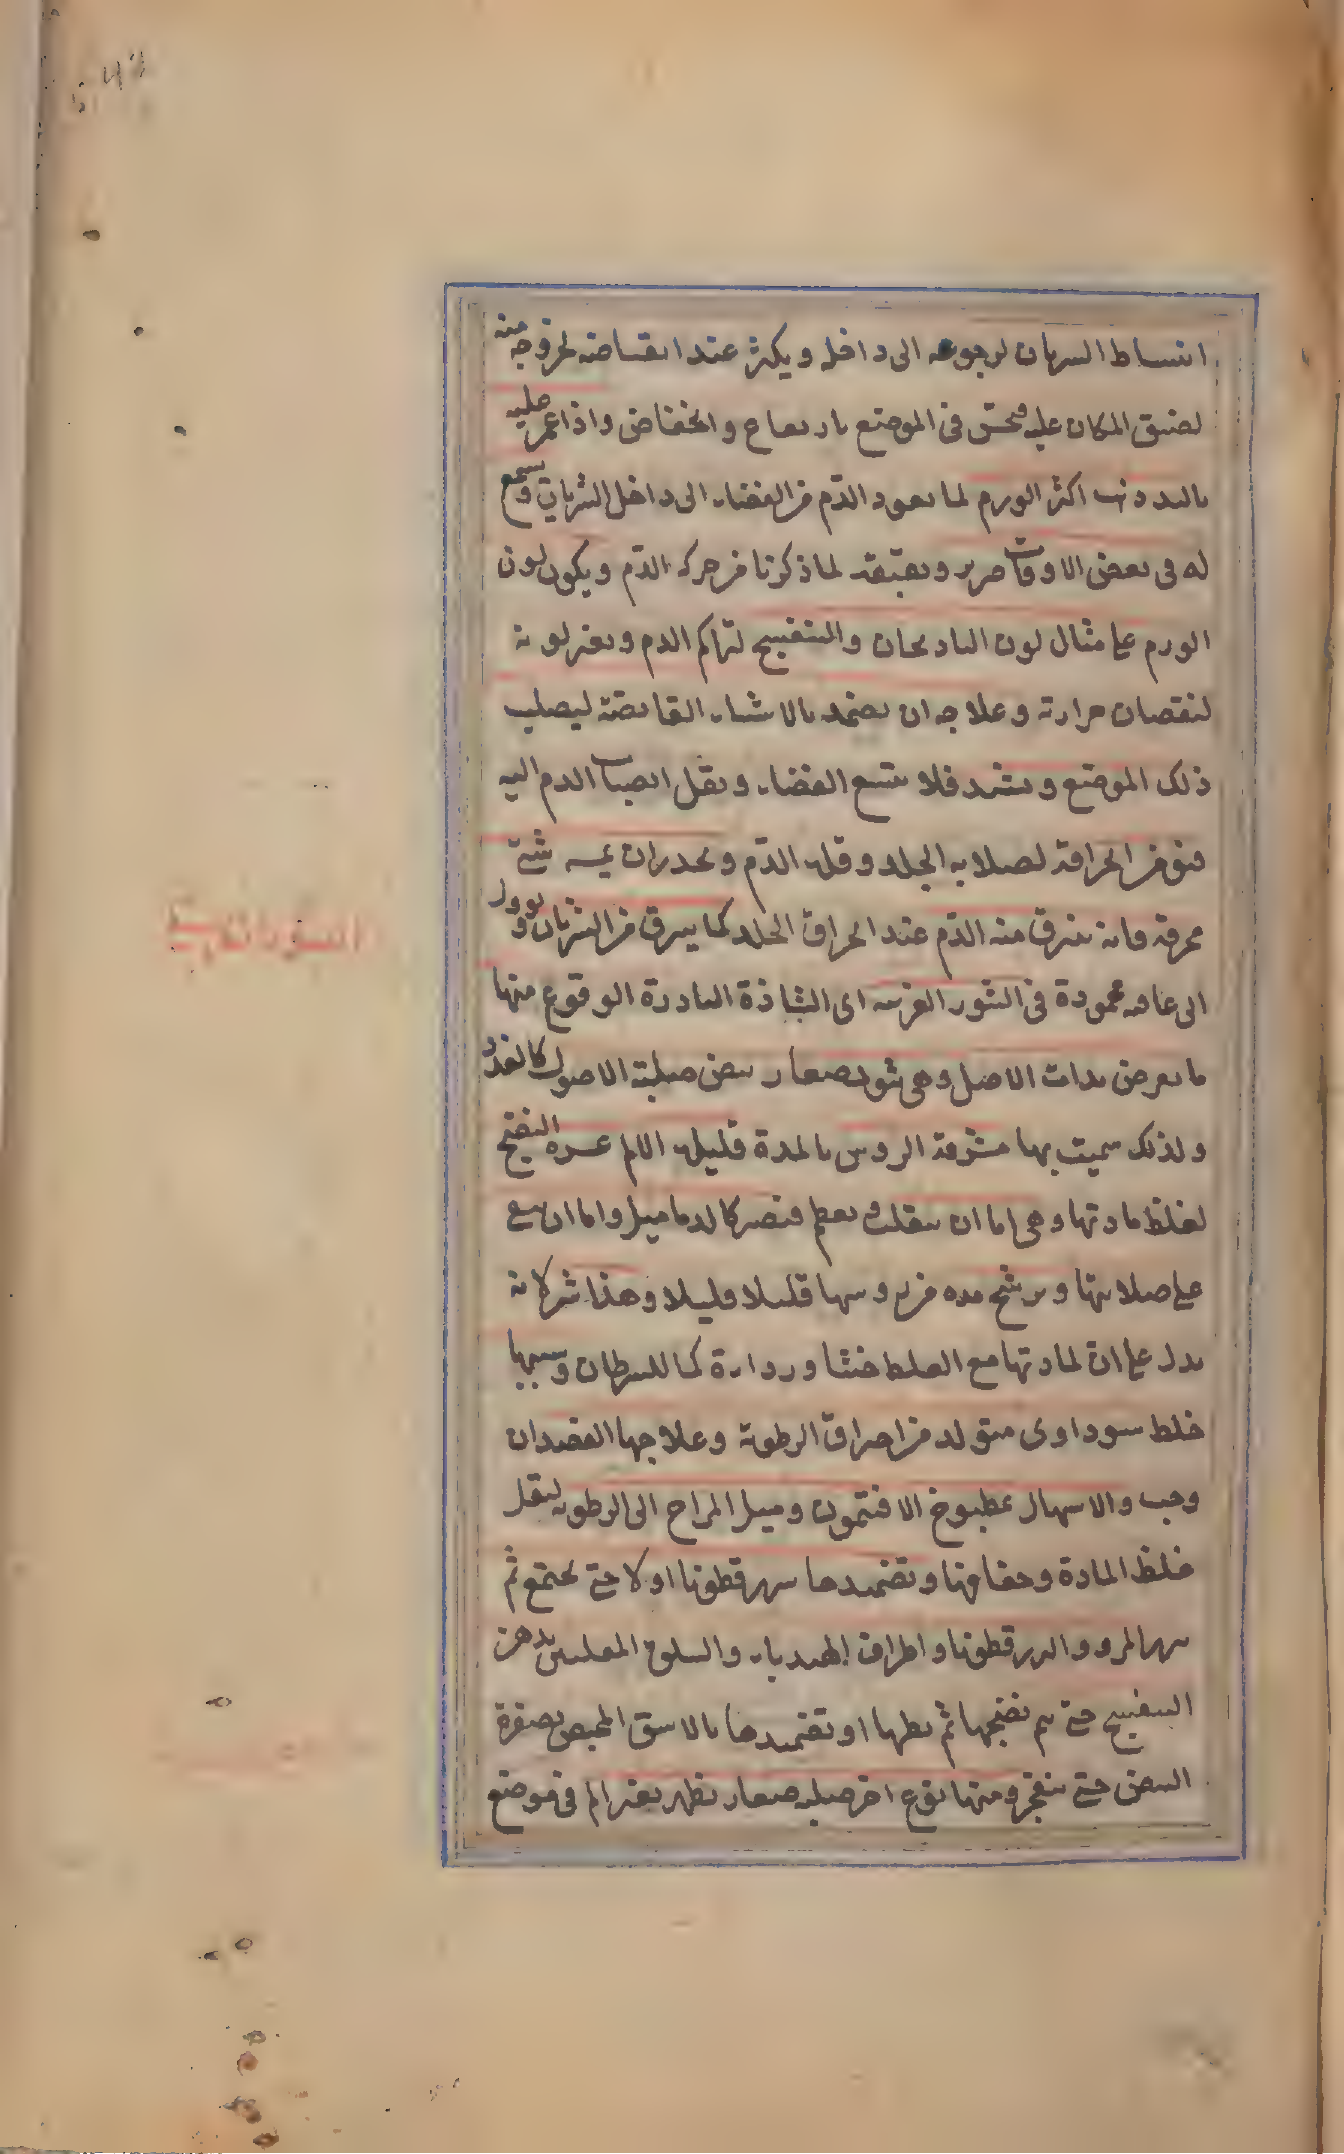 انبساط الشريان لرجوعه الى داخله ويكثر عند انقباضه لخروجه منه
لضيق المكان عليه فيحس فى الموضع بارتفاع وانخفاض واذا غمز عليه
باليد ذهب اكثر الورم لما يعود الدم من الفضاء الى داخل الشريان ويسمع
له فى بعض الاوقات صرير وبقبقة لما ذكرنا من حركة الدم ويكون لون
الورم على مثال لون الباذنجان والبنفسج لتراكم الدم وتغير لونه
لنقصان حرارته وعلاجه ان يضمد بالاشياء القابضة ليصلب
ذلك الموضع ويشتد فلا يتسع الفضاء ويقل انصباب الدم اليه
من الحرافة لصلابه الجلد وقلة الدم ويحذر ان يمسه شئ
محرقة فانه ينزف منه الدم عند الحراق الجلد كما يبرق من الشريان ويؤول
الى عاقبه محمودة فى البثور الغريبه اى الشاذة النادرة الوقوع منها
ما يعرض بذات الاصل وهى بثور صغار بيض صلبة الاصول كالغدد
ولذلك سميت بها مشرفة الروس بالمدة قليلة الالم عسرة النضج
لغلظ مادتها وهى اما ان تنقلب وتعظم فتصير كالدماميل واما ان تبقى
على صلابتها ويرشح مده من روسها قليلا قليلا وهذا شر لانه
يدل على ان لمادتها مع الغلظ خبثا ورداءة كما للسرطان وسببها
خلط سوداوى متولد من احراق الرطوبة وعلاجها الفصد ان
وجب والاسهال بمطبوخ الافتيمون وميل المزاج الى الرطوبه ليقل
غلظ المادة وجفافها وتضميدها ببزر قطونا اولا حتى يجتمع ثم
ببزر المرو والبزر قطونا واطراف الهندباء والسلق المغلى بدهن
البنفسج حتى يتم نضجها ثم بطها او تضميدها بالاشق المحيص بصفرة
البيض حتى ينفجر ومنها نوع اخر صلبه صغار يظهر بغير الم فى موضع